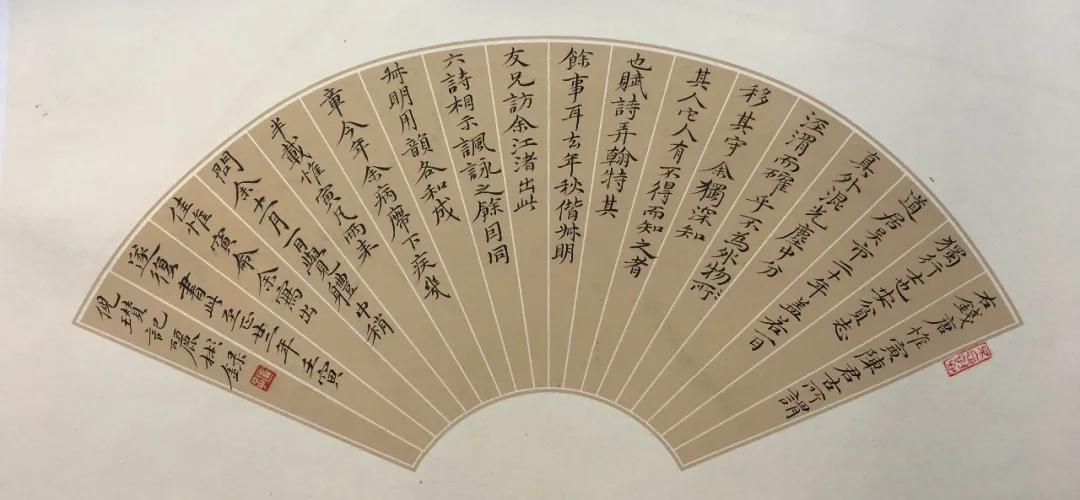 右錢唐惟寅陳君古所謂
獨行士也安貧志
道居吳市二十年蓋若一日
真外混光塵中分
涇渭而確乎不為外物所
移其守余獨深知
其人它人有不得而知之者
也賦詩弄翰特其
餘事耳去年秋偕叔明
友兄訪余江渚出此
六詩相示諷詠之餘因同
叔明用韻各和成
章今年余病滯下疾幾
半載惟寅凡兩来
問余十二月一日覺體中稍
佳惟寅命余寫出
遂復書此至正廿二年壬寅
倪瓚記彬錄